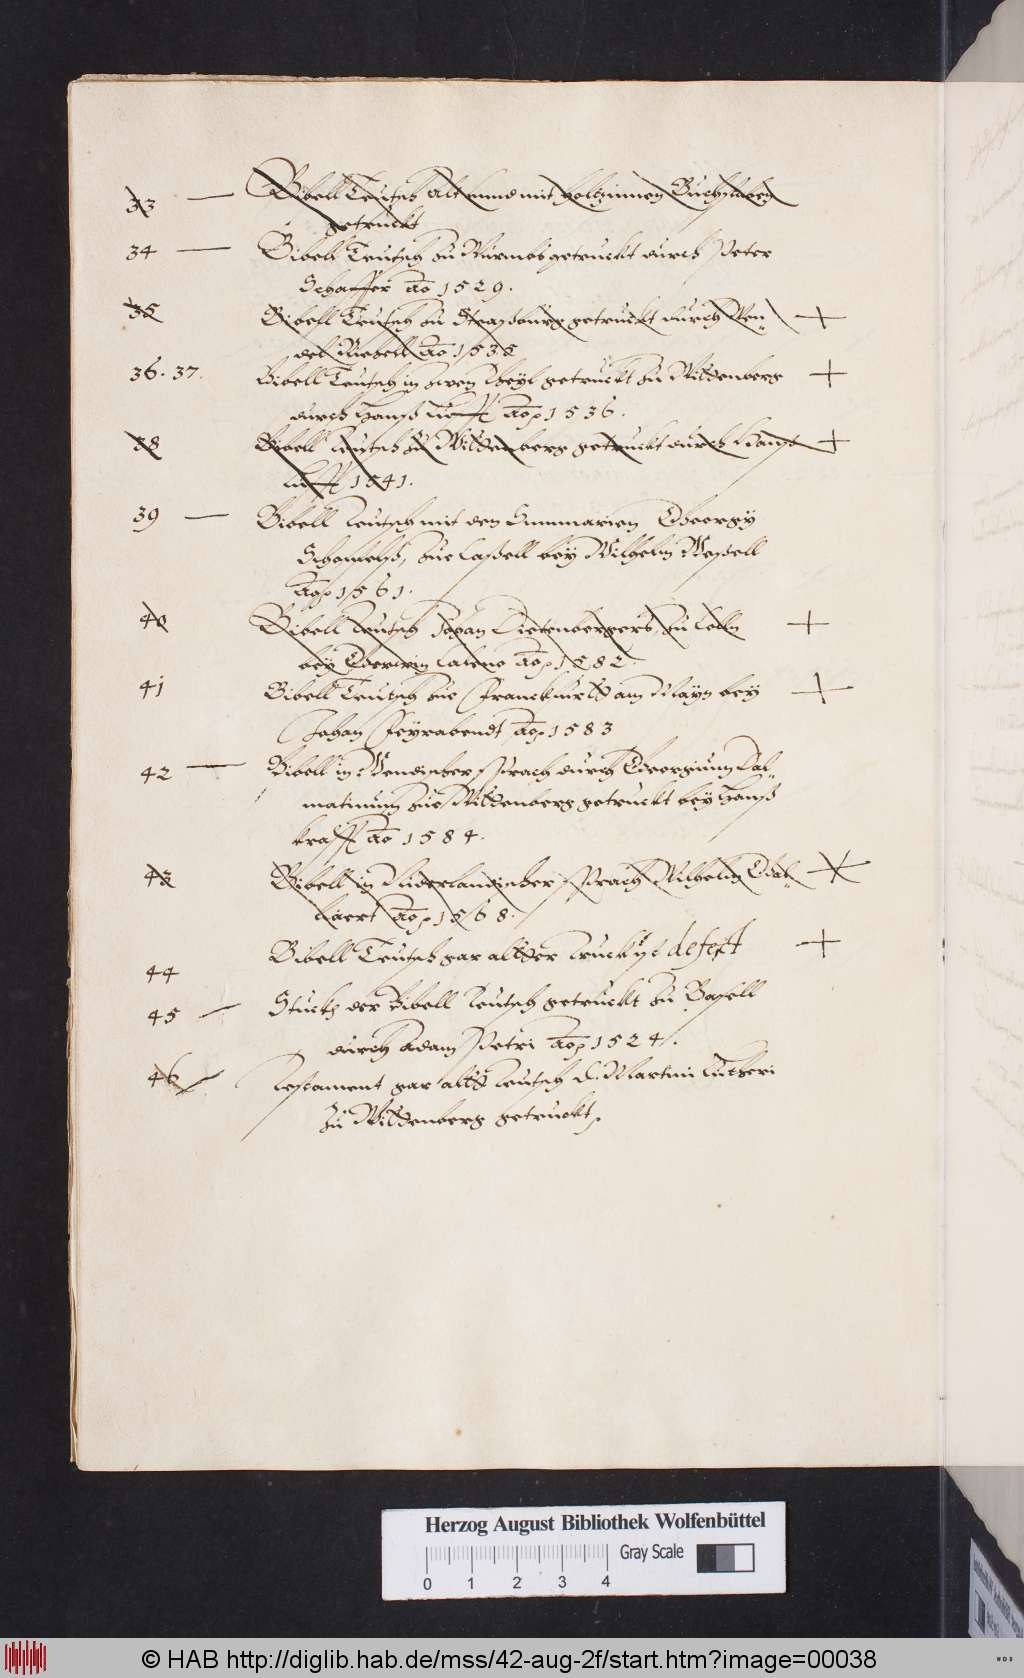 33 — Bibell Teutsch alt unnd mit holtzinnen Buchstaben
getruckt
34 — Bibell Teutsch zu Wurmbs getruckt durch Peter
Schaffer Ao 1529.
35 Bibell Teutsch zu Straßburg getruckt durch Wen= +
del Riehell Ao 1535
36. 37. Bibell Teutsch in zwen theyl getruckt zu Wittenberg +
durch Hanß Lufft Ao 1536.
38 Bibell Teutsch zu Wittenberg getruckt durch Hanß +
Lufft 1541.
39 — Bibell Teutsch mit den Summarien
bey Wilhelm Wessell
Ao 1561.
40 Bibell Teutsch Johan Dietenbergers, zu Cölln +
bey Gherwin Caleno Ao 1582.
41 Bibell Teutsch zue Franckfurtt am Mayn bey +
Johan Feyrabendt Ao 1583
42 — Bibell in Wendischer Sprach durch Georgium Dal=
matinum zue Wittenberg getruckt bey Hanß
Krafft Ao 1584.
43 Bibell in Niderlandischer Sprach Wilhelm Gal=
liaert Ao 1568.
44 Bibell Teutsch gar altter Truck ist defect +
45 — Stuckh der Bibell Teutsch getruckt zu Basell
durch Adam Petri Ao 1524.
46 — Testament gar altt Teutsch D. Martini Lutheri
zu Wittenberg getruckt.
Herzog August Bibliothek Wolfenbüttel
Gray Scale
0 1 2 3 4
© HAB http://diglib.hab.de/mss/42-aug-2f/start.htm?image=00038